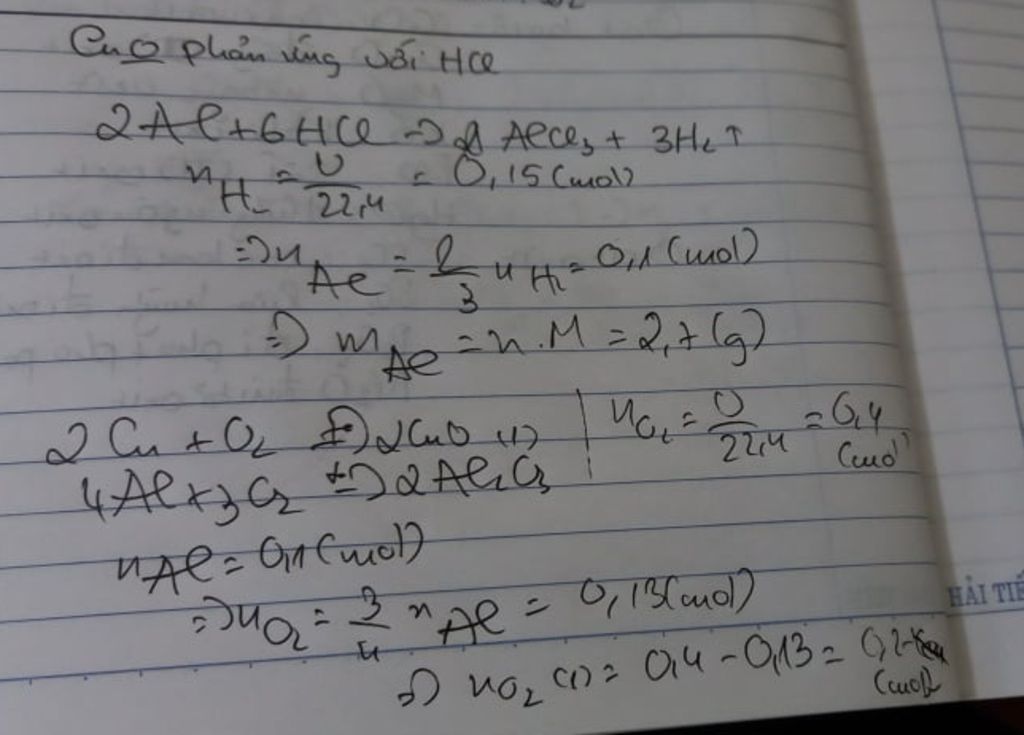 CuO phản ứng với HCl
2Al + 6HCl → 2 AlCl3 + 3H2 ↑
nH2 = V/22,4 = 0,15 (mol)
=> nAl = 2/3 nH2 = 0,1 (mol)
=> mAl = n.M = 2,7 (g)
2 Cu + O2 → 2CuO (1) | nO2 = V/22,4 = 0,4 (mol)
4Al + 3O2 → 2Al2O3
nAl = 0,1 (mol)
=> nO2 = 3/4 nAl = 0,13 (mol)
HẢI TIẾ
=> nO2 (1) = 0,4 - 0,13 = 0,2 (mol)